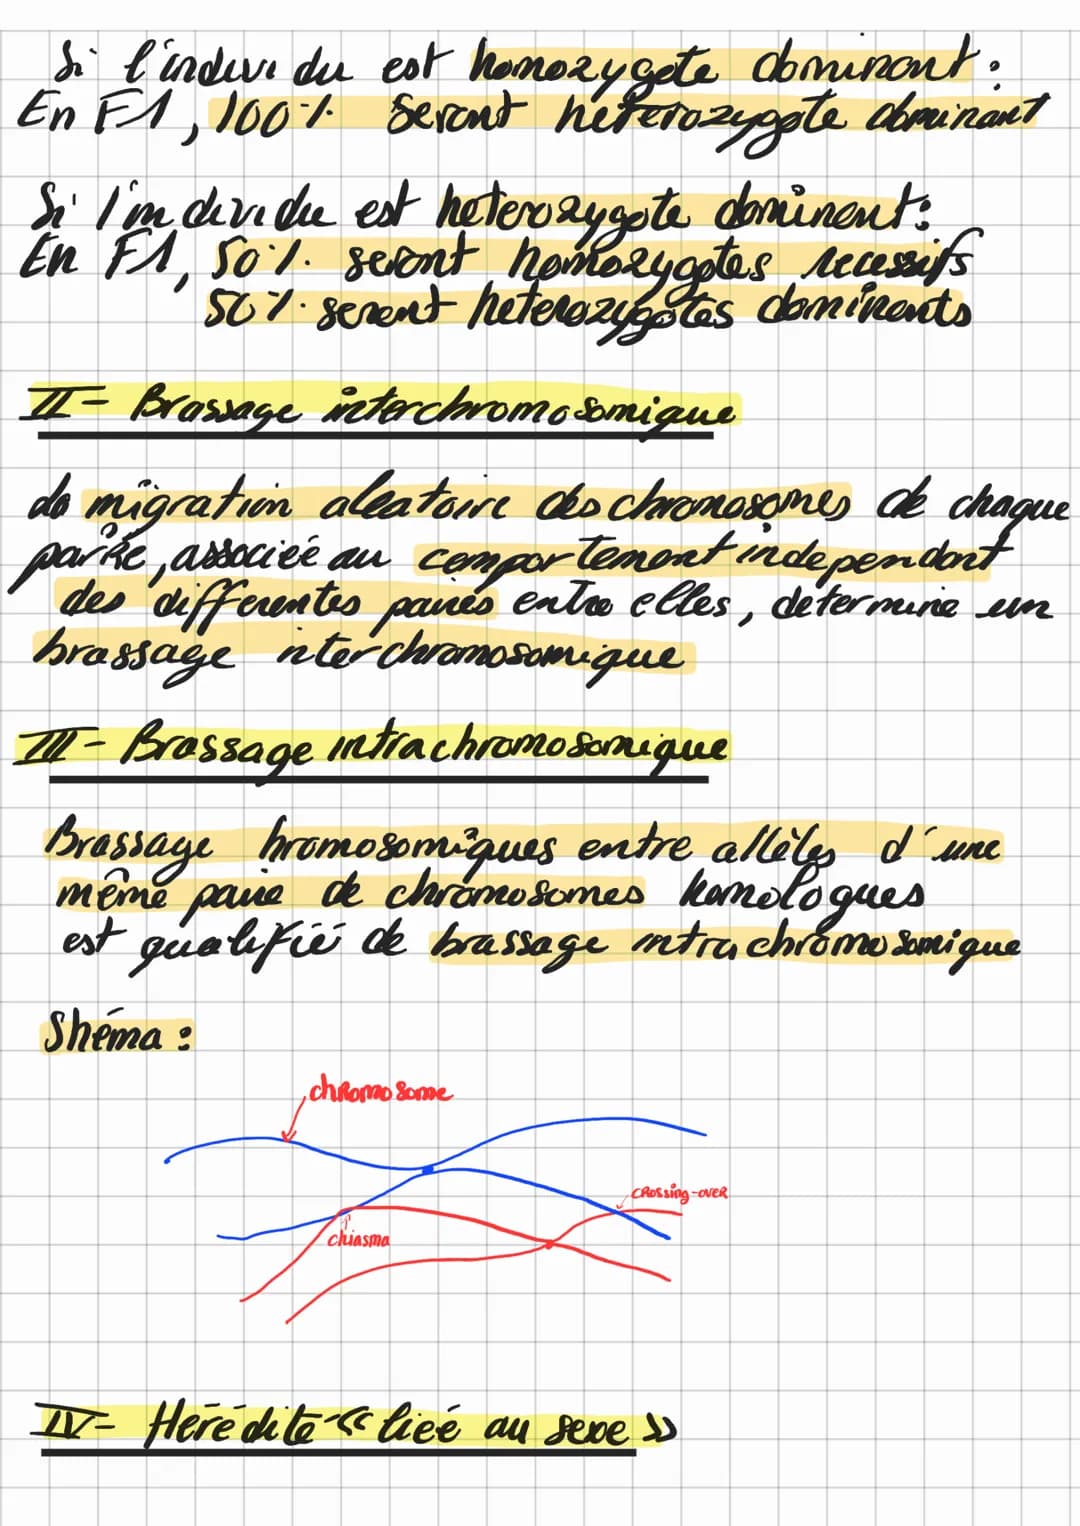 Si l'individu est homozygote dominant :
En F1, 100% Seront héterozygote dominant
Si l'individu est héterozygote dominant :
En F1, 50%. seront homozygotes recessifs
50%. seront héterozygotes dominants
II- Brassage interchromosomique
La migration aleatoire des chromosomes de chaque
paire, associée au comportement independant
des differentes paires entre elles, determine un
brassage nterchromosomique
III- Brassage intrachromosomique
Brassage hromosomiques entre allèles d'une
même paire de chromosomes homologues
est qualifié de brassage intrachromosomique
Shéma :
chromosome
crossing-over
chiasma
IV- Hérédité << liée au sexe >>